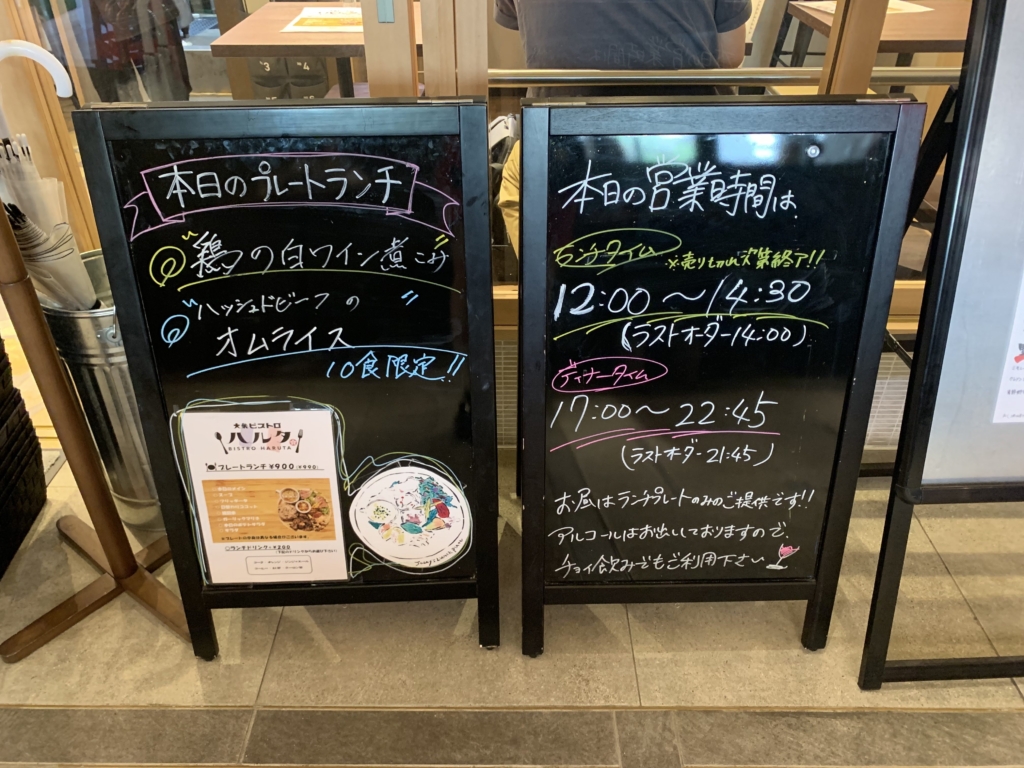 本日のプレートランチ
鶏の白ワイン煮こみ
ハッシュドビーフの
オムライス
10食限定!!
大泉ビストロ
ハルタ
BISTRO HARUTA
プレートランチ ¥900
ランチドリンク+¥200
本日の営業時間は、
ランチタイム ※売り切れ次第終了!!
12:00〜14:30
(ラストオーダー14:00)
ディナータイム
17:00〜22:45
(ラストオーダー21:45)
お昼はランチプレートのみのご提供です!!
アルコールはお出ししておりますので、
チョイ飲みでもご利用下さ〜い
3 4